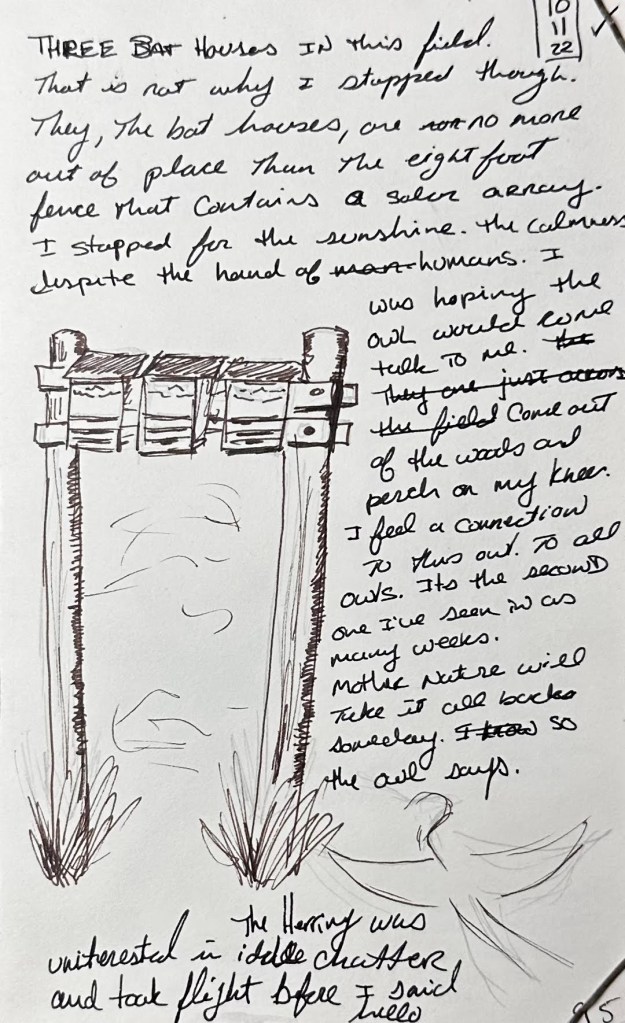 10
11
22
THREE BAT Houses IN this field.
That is not why I stopped though.
They, The bat houses, are no more
out of place Than The eight foot
fence that Contains a solar array.
I stopped for the sunshine. the calmness
despite the hand of man humans. I
was hoping the
owl would come
talk To me. the
They are just across
the field Come out
of the woods and
perch on my knee.
I feel a connection
To this owl. To all
owls. Its the second
one I've seen in as
many weeks.
Mother Nature will
Take it all back
someday. I know so
the owl says.
The Herring was
uniterested in iddle chatter
and took flight bfere I said
hello
95